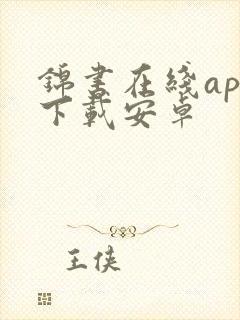 錦書在綫ap
下載安卓
王侠